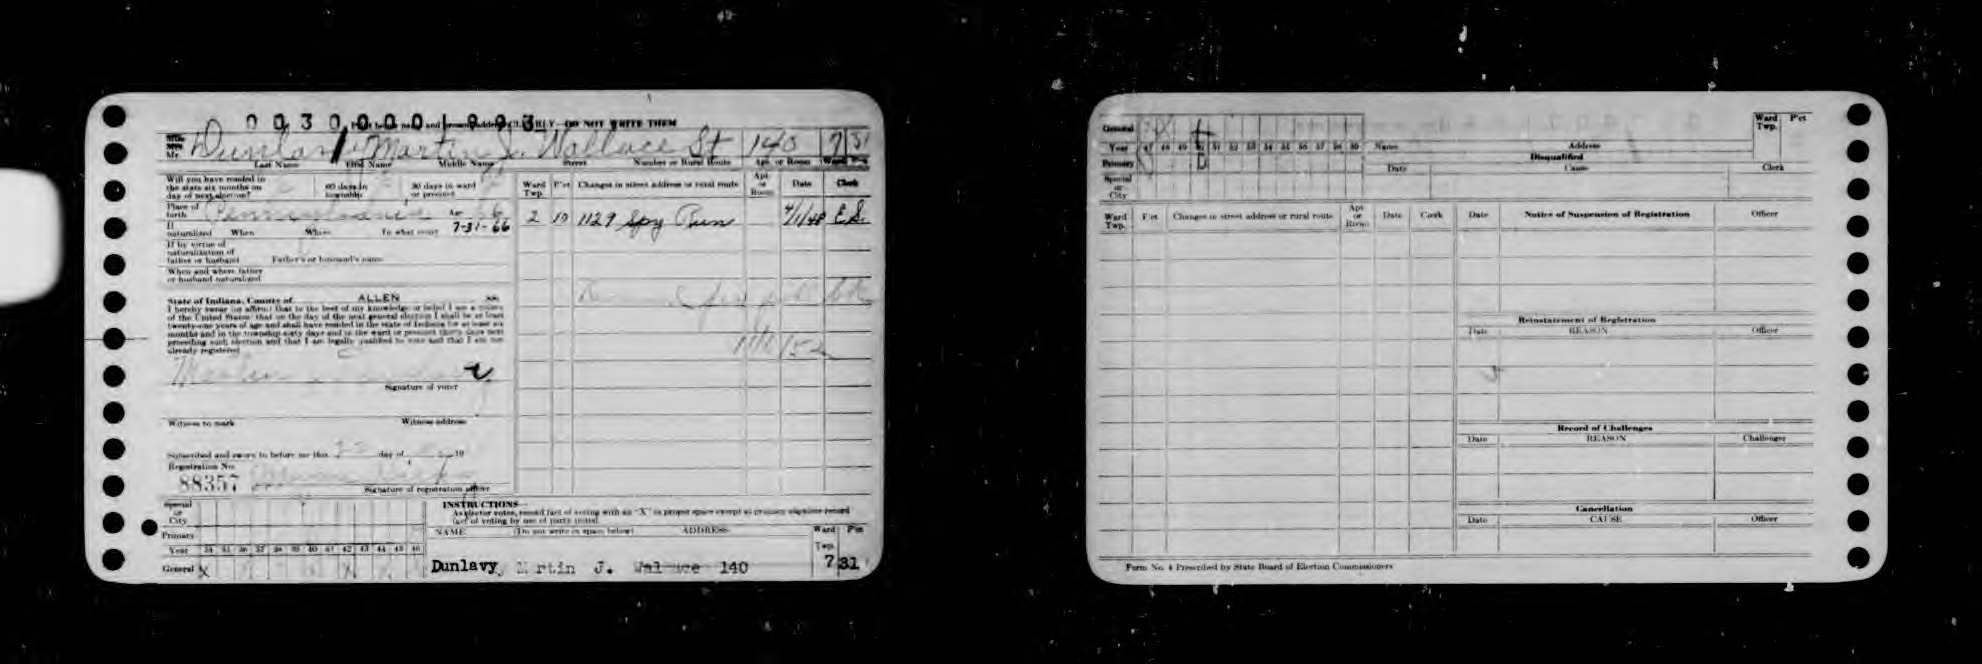 00300001993
NOT WRITE THEM
Mrs.
Miss
Mr. Dunlavy Martin J. Wallace St 140 7 31
Last Name First Name Middle Name Street Number or Rural Route Apt. or Room Ward P'ct
Will you have resided in
the state six months on
day of next election?
60 days in
township
30 days in ward
or precinct
Place of
birth Pennsylvania Age
7-31-66
If
naturalized When Where To what court
If by virtue of
naturalization of
father or husband Father's or husband's name
When and where father
or husband naturalized
State of Indiana, County of ALLEN ss.
I hereby swear (or affirm) that to the best of my knowledge or belief I am a citizen
of the United States; that on the day of the next general election I shall be at least
twenty-one years of age and shall have resided in the state of Indiana for at least six
months and in the township sixty days and in the ward or precinct thirty days next
preceding such election and that I am legally qualified to vote and that I am not
already registered
Martin
Signature of voter
Witness to mark Witness address
Subscribed and sworn to before me this day of 19
Registration No.
88357
Signature of registration officer
Ward
Twp.
P'ct Changes in street address or rural route
Apt
or
Room
Date Clerk
2 10 1129 Spy Run 4/1/48 E.S.
Special
or
City
Primary
Year 34 35 36 37 38 39 40 41 42 43 44 45 46
General X
INSTRUCTIONS
As elector votes, record fact of voting with an "X" in proper space except at primary elections record
fact of voting by use of party initial
NAME (Do not write in space below) ADDRESS Ward
Twp.
P'ct
Dunlavy, Martin J. Wallace 140 7 31
General X
Year 47 48 49 50 51 52 53 54 55 56 57 58 59
Primary
Special
or
City
Ward
Twp.
P'ct
Name Address
Disqualified
Date Cause Clerk
Ward
Twp.
P'ct Changes in street address or rural route
Apt
or
Room
Date Clerk
Date Notice of Suspension of Registration Officer
Reinstatement of Registration
Date REASON Officer
Record of Challenges
Date REASON Challenger
Cancellation
Date CAUSE Officer
Form No. 4 Prescribed by State Board of Election Commissioners